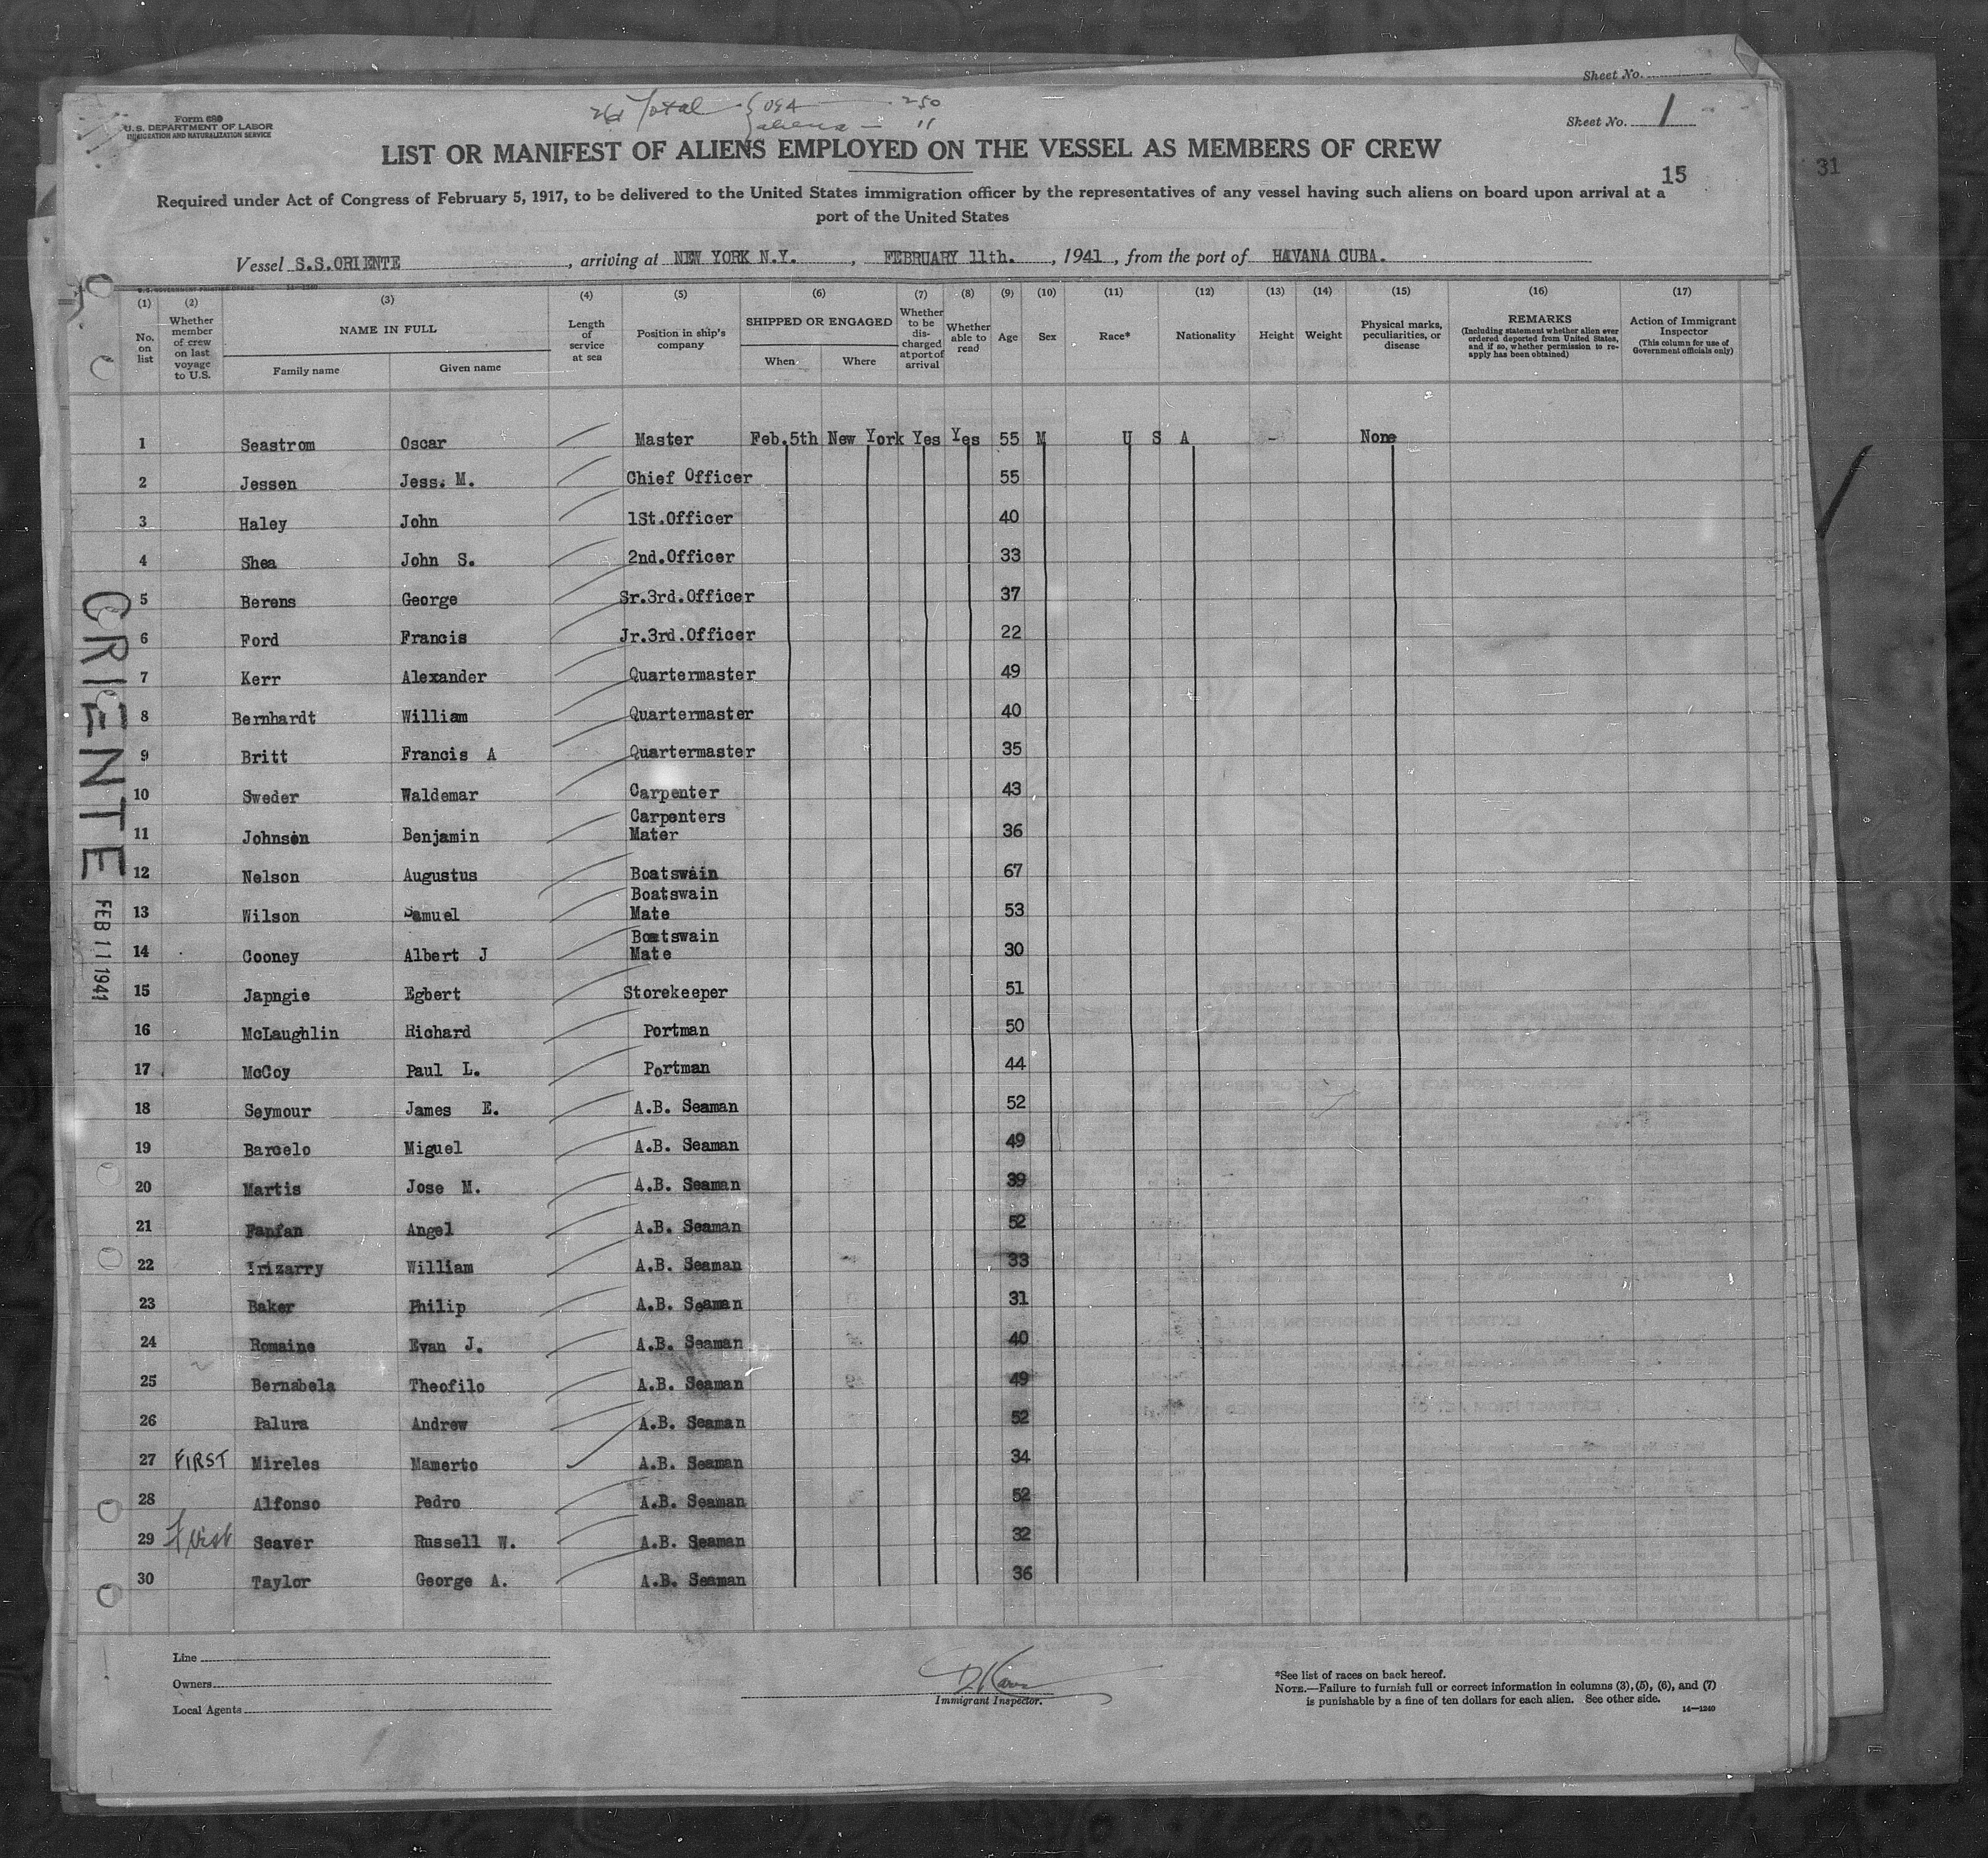 Sheet No.
Total { USA 250
aliens 11
Form 680
U.S. DEPARTMENT OF LABOR
IMMIGRATION AND NATURALIZATION SERVICE
Sheet No. 1
LIST OR MANIFEST OF ALIENS EMPLOYED ON THE VESSEL AS MEMBERS OF CREW
15
31
Required under Act of Congress of February 5, 1917, to be delivered to the United States immigration officer by the representatives of any vessel having such aliens on board upon arrival at a
port of the United States
Vessel S.S.ORIENTE, arriving at NEW YORK N.Y., FEBRUARY 11th., 1941, from the port of HAVANA CUBA.
U.S. GOVERNMENT PRINTING OFFICE 14-1240
(1) (2) (3) (4) (5) (6) (7) (8) (9) (10) (11) (12) (13) (14) (15) (16) (17)
No. on list
Whether member of crew on last voyage to U.S.
NAME IN FULL
Family name
Given name
Length of service at sea
Position in ship's company
SHIPPED OR ENGAGED
When
Where
Whether to be discharged at port of arrival
Whether able to read
Age
Sex
Race*
Nationality
Height
Weight
Physical marks, peculiarities, or disease
REMARKS
(Including statement whether alien ever ordered deported from United States, and if so, whether permission to re-apply has been obtained)
Action of Immigrant Inspector
(This column for use of Government officials only)
1 Seastrom Oscar Master Feb.5th New York Yes Yes 55 M U S A - None
2 Jessen Jess. M. Chief Officer 55
3 Haley John 1St.Officer 40
4 Shea John S. 2nd.Officer 33
5 Berens George Sr.3rd.Officer 37
6 Ford Francis Jr.3rd.Officer 22
7 Kerr Alexander Quartermaster 49
8 Bernhardt William Quartermaster 40
9 Britt Francis A Quartermaster 35
10 Sweder Waldemar Carpenter 43
11 Johnson Benjamin Carpenters Mater 36
12 Nelson Augustus Boatswain 67
13 Wilson Samuel Boatswain Mate 53
14 Cooney Albert J Boatswain Mate 30
15 Japngie Egbert Storekeeper 51
16 McLaughlin Richard Portman 50
17 McCoy Paul L. Portman 44
18 Seymour James E. A.B. Seaman 52
19 Barcelo Miguel A.B. Seaman 49
20 Martis Jose M. A.B. Seaman 39
21 Fanfan Angel A.B. Seaman 52
22 Irizarry William A.B. Seaman 33
23 Baker Philip A.B. Seaman 31
24 Romaine Evan J. A.B. Seaman 40
25 Bernabela Theofilo A.B. Seaman 49
26 Palura Andrew A.B. Seaman 52
27 FIRST Mireles Mamerto A.B. Seaman 34
28 Alfonso Pedro A.B. Seaman 52
29 First Seaver Russell W. A.B. Seaman 32
30 Taylor George A. A.B. Seaman 36
ORIENTE
FEB 11 1941
Line
Owners
Local Agents
Immigrant Inspector.
*See list of races on back hereof.
NOTE.—Failure to furnish full or correct information in columns (3), (5), (6), and (7)
is punishable by a fine of ten dollars for each alien. See other side.
14-1240